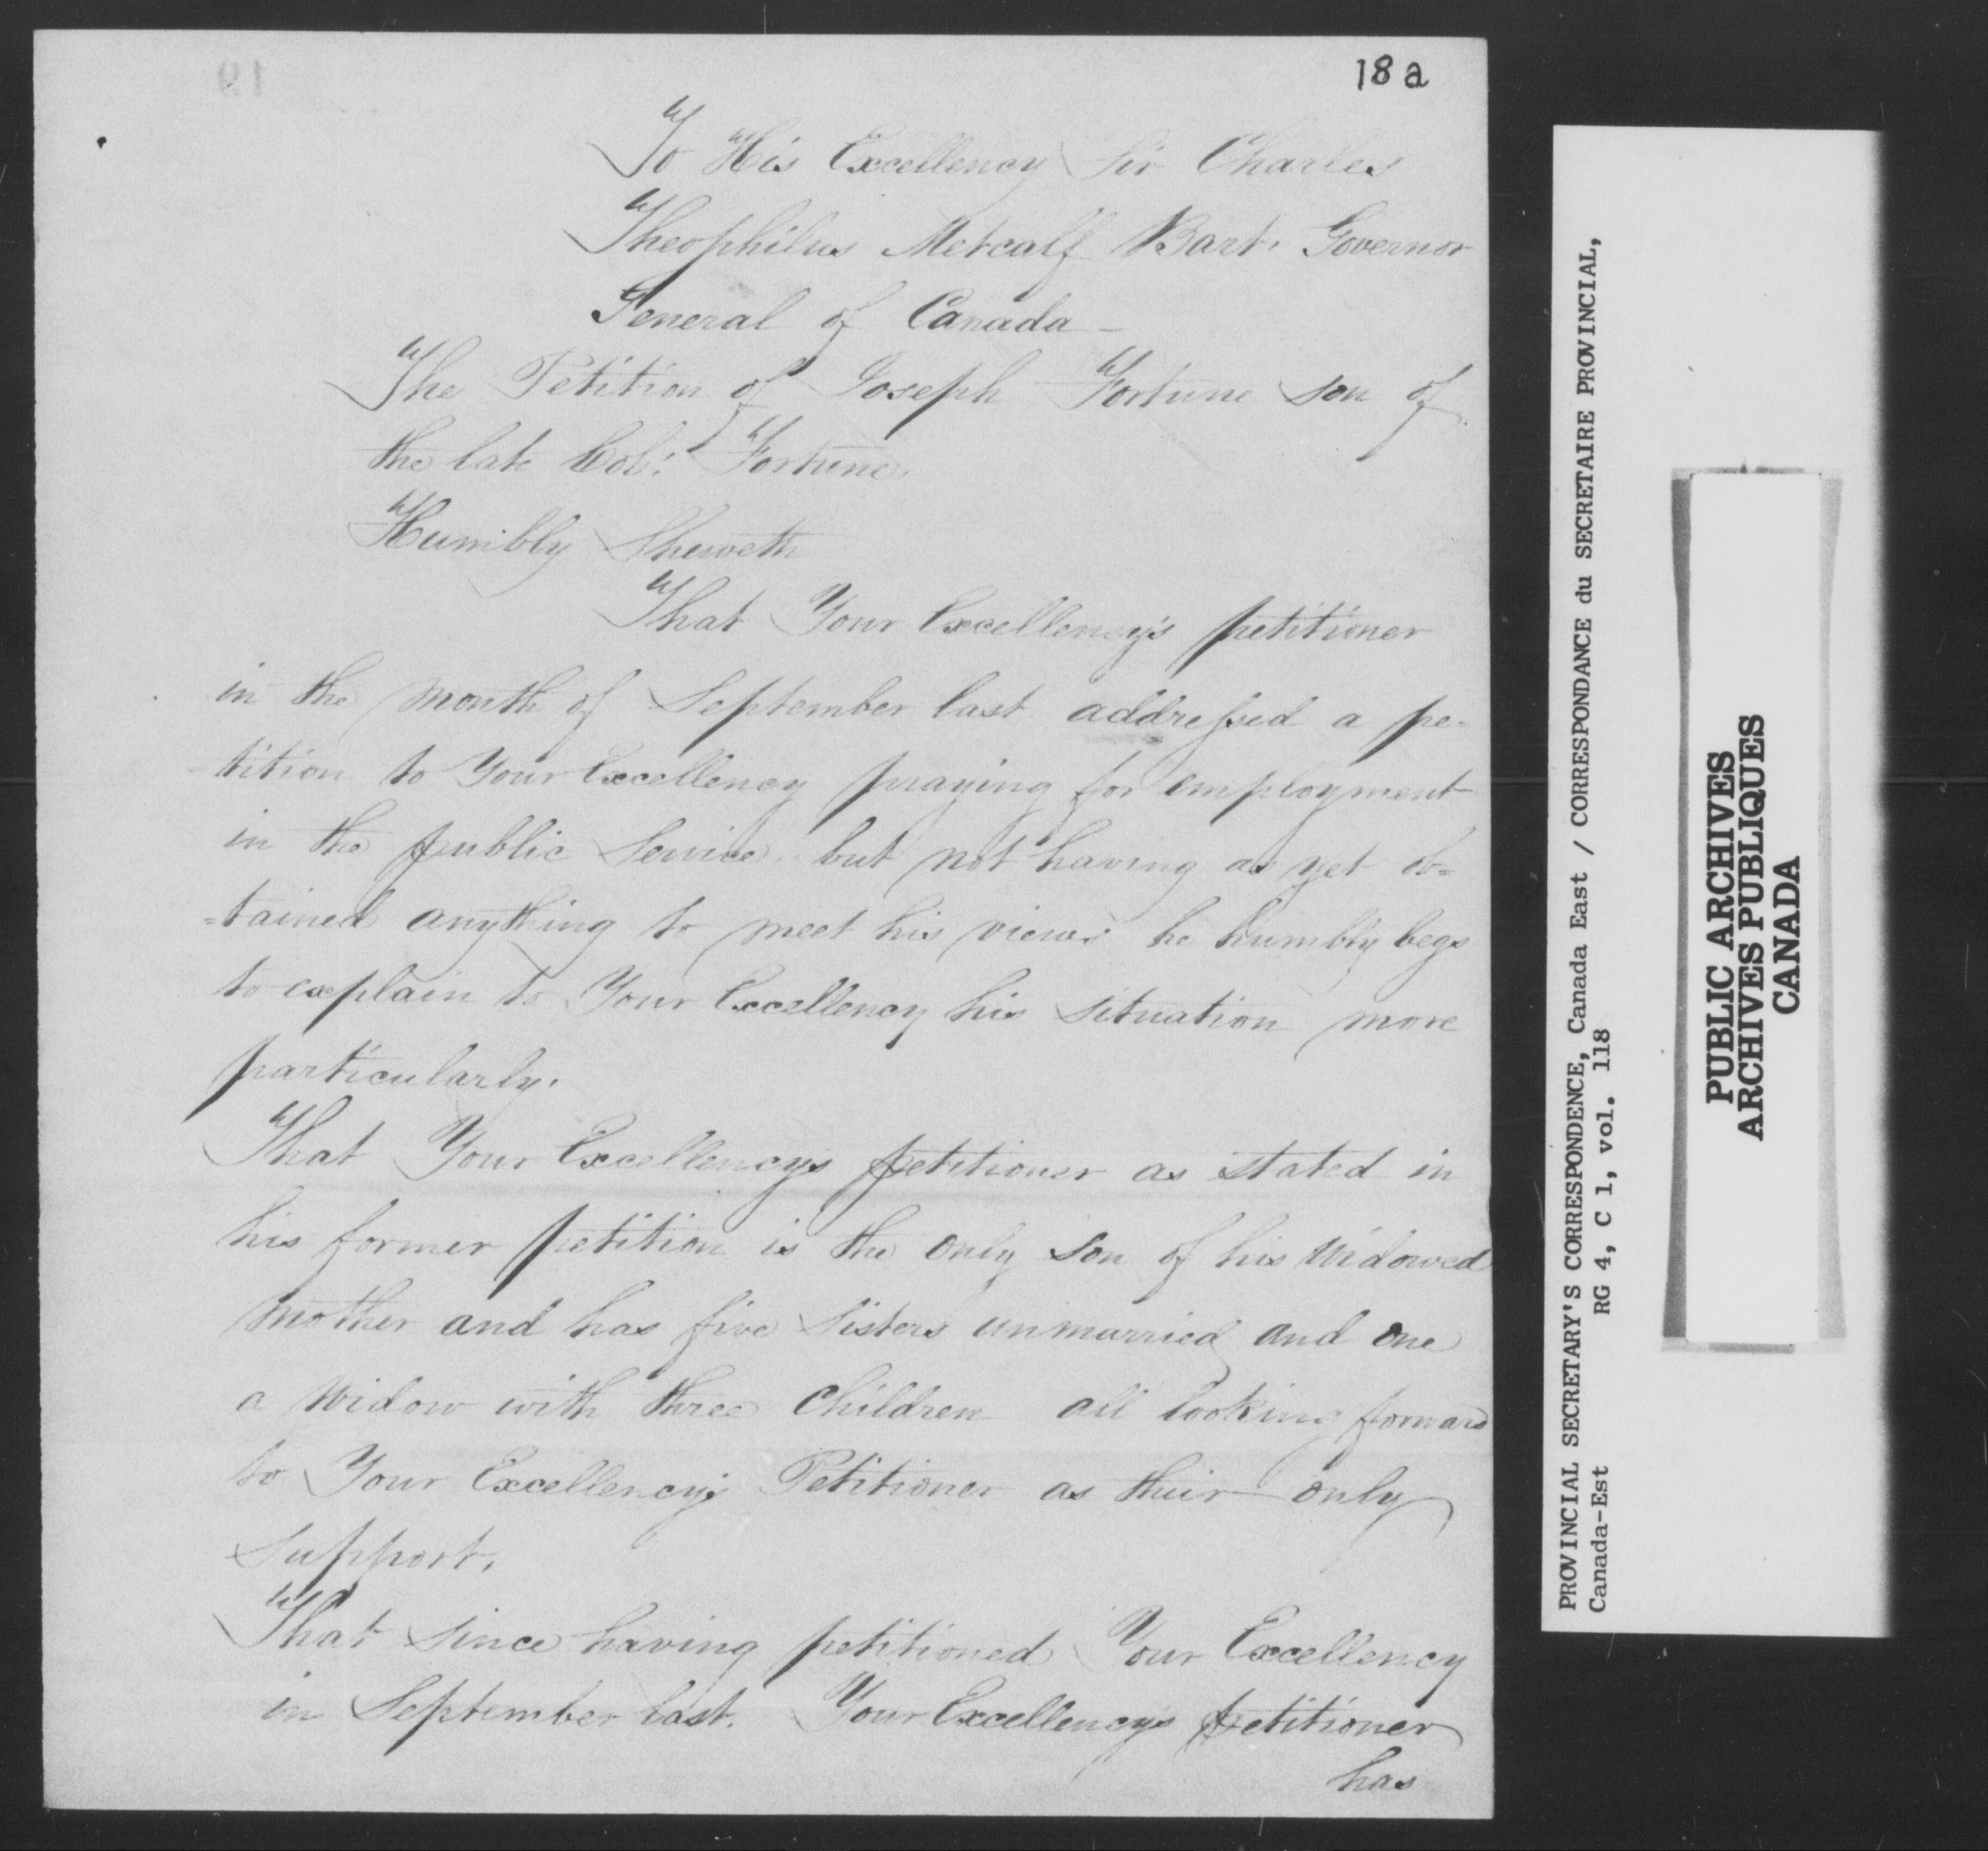 18a
To His Excellency Sir Charles
Theophilus Metcalf Bart. Governor
General of Canada —
The Petition of Joseph Fortune son of
the late Col: Fortune,
Humbly Sheweth
That Your Excellency's petitioner
in the month of September last addressed a pe-
tition to Your Excellency praying for employment
in the public Service, but not having as yet ob=
=tained anything to meet his views he humbly begs
to explain to Your Excellency his situation more
particularly.
That Your Excellencys petitioner as stated in
his former petition is the only son of his Widowed
mother and has five Sisters unmarried and one
a Widow with three Children all looking forward
to Your Excellencys Petitioner as their only
support.
That since having petitioned Your Excellency
in September last. Your Excellency's petitioner
has
PROVINCIAL SECRETARY'S CORRESPONDENCE, Canada East / CORRESPONDANCE du SECRETAIRE PROVINCIAL,
Canada-Est RG 4, C 1, vol. 118
PUBLIC ARCHIVES
ARCHIVES PUBLIQUES
CANADA